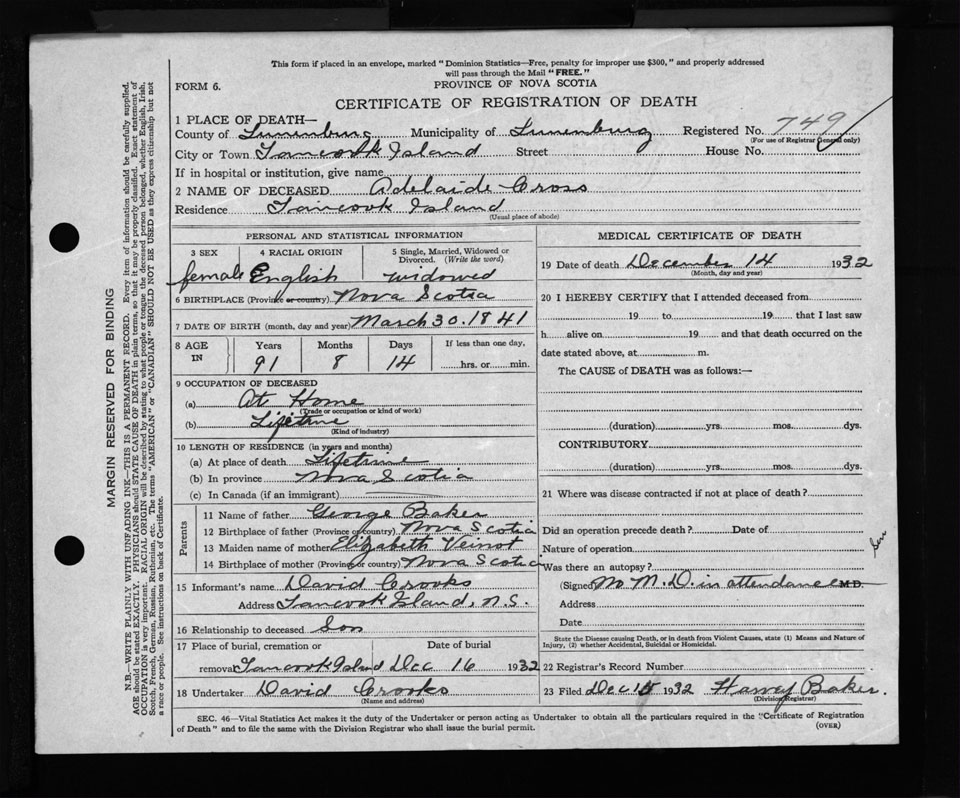 This form if placed in an envelope, marked "Dominion Statistics—Free, penalty for improper use $300," and properly addressed
will pass through the Mail "FREE."
FORM 6.
PROVINCE OF NOVA SCOTIA
CERTIFICATE OF REGISTRATION OF DEATH
1 PLACE OF DEATH—
County of Lunenburg Municipality of Lunenburg Registered No. 749
(For use of Registrar General only)
City or Town Tancook Island Street House No.
If in hospital or institution, give name
2 NAME OF DECEASED Adelaide Cross
Residence Tancook Island
(Usual place of abode)
PERSONAL AND STATISTICAL INFORMATION
3 SEX 4 RACIAL ORIGIN 5 Single, Married, Widowed or Divorced. (Write the word)
female English widowed
6 BIRTHPLACE (Province or country) Nova Scotia
7 DATE OF BIRTH (month, day and year) March 30. 1841
8 AGE IN Years Months Days If less than one day,
91 8 14 hrs. or min.
9 OCCUPATION OF DECEASED
(a) At Home
(Trade or occupation or kind of work)
(b) Lifetime
(Kind of industry)
10 LENGTH OF RESIDENCE (in years and months)
(a) At place of death Lifetime
(b) In province Nova Scotia
(c) In Canada (if an immigrant)
Parents
11 Name of father George Baker
12 Birthplace of father (Province or country) Nova Scotia
13 Maiden name of mother Elizabeth Veinot
14 Birthplace of mother (Province or country) Nova Scotia
15 Informant's name David Crooks
Address Tancook Island, N.S.
16 Relationship to deceased Son
17 Place of burial, cremation or Date of burial
removal Tancook Island Dec 16 1932
18 Undertaker David Crooks
(Name and address)
MEDICAL CERTIFICATE OF DEATH
19 Date of death December 14 1932
(Month, day and year)
20 I HEREBY CERTIFY that I attended deceased from
19 to 19 that I last saw
h alive on 19 and that death occurred on
date stated above, at m.
The CAUSE of DEATH was as follows:—
(duration) yrs. mos. dys.
CONTRIBUTORY
(duration) yrs. mos. dys.
21 Where was disease contracted if not at place of death?
Did an operation precede death? Date of
Nature of operation
Was there an autopsy?
(Signed) No M. D. in attendance M.D.
Address
Date
State the Disease causing Death, or in death from Violent Causes, state (1) Means and Nature of
Injury, (2) whether Accidental, Suicidal or Homicidal.
22 Registrar's Record Number
23 Filed Dec 15 1932 Harvey Baker.
(Division Registrar)
SEC. 46—Vital Statistics Act makes it the duty of the Undertaker or person acting as Undertaker to obtain all the particulars required in the "Certificate of Registration
of Death" and to file the same with the Division Registrar who shall issue the burial permit.
(OVER)
MARGIN RESERVED FOR BINDING
N.B.—WRITE PLAINLY WITH UNFADING INK—THIS IS A PERMANENT RECORD. Every item of information should be carefully supplied.
AGE should be stated EXACTLY. PHYSICIANS should STATE CAUSE OF DEATH in plain terms, so that it may be properly classified. Exact statement of
OCCUPATION is very important. RACIAL ORIGIN will be described by stating to what people or tongue the deceased person belonged, whether English, Irish,
Scotch, French, German, Russian, Ruthenian, etc. The terms "AMERICAN" or "CANADIAN" SHOULD NOT BE USED as they express citizenship but not
a race or people. See instructions on back of Certificate.